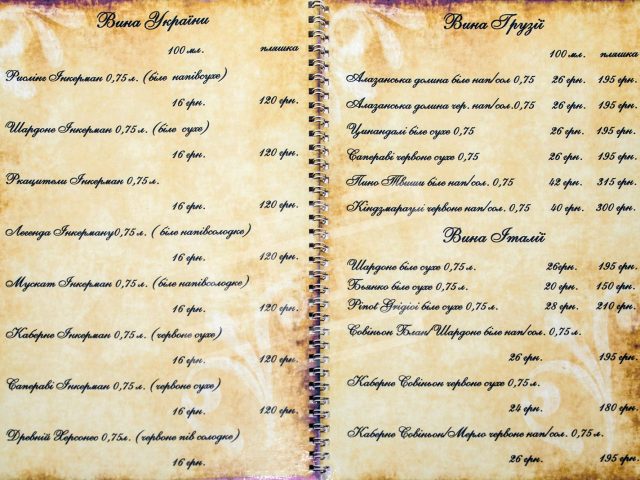 Вина України
100 мл. пляшка
Рислінг Інкерман 0,75 л. (біле напівсухе)
16 грн. 120 грн.
Шардоне Інкерман 0,75 л. (біле сухе)
16 грн. 120 грн.
Ркацители Інкерман 0,75 л.
16 грн. 120 грн.
Легенда Інкерману 0,75 л. (біле напівсолодке)
16 грн. 120 грн.
Мускат Інкерман 0,75 л. (біле напівсолодке)
16 грн. 120 грн.
Каберне Інкерман 0,75 л. (червоне сухе)
16 грн. 120 грн.
Сапераві Інкерман 0,75 л. (червоне сухе)
16 грн. 120 грн.
Древній Херсонес 0,75л. (червоне пів солодке)
16 грн.
Вина Грузії
100 мл. пляшка
Алазанська долина біле нап/сол 0,75 26 грн. 195 грн.
Алазанська долина чер. нап/сол.0,75 26 грн. 195 грн.
Цинандалі біле сухе 0,75 26 грн. 195 грн.
Сапераві червоне сухе 0,75 26 грн. 195 грн.
Пино Твиши біле нап/сол. 0,75 42 грн. 315 грн.
Кіндзмараулі червоне нап/сол. 0,75 40 грн. 300 грн.
Вина Італії
Шардоне біле сухе 0,75 л. 26грн. 195 грн.
Бьянко біле сухе 0,75 л. 20 грн. 150 грн.
Pinot Grigiol біле сухе 0,75 л. 28 грн. 210 грн.
Совіньон Блан/Шардоне біле нап/сол. 0,75 л.
26 грн. 195 грн.
Каберне Совіньон червоне сухе 0,75 л.
24 грн. 180 грн.
Каберне Совіньон/Мерло червоне нап/сол. 0,75 л.
26 грн. 195 грн.